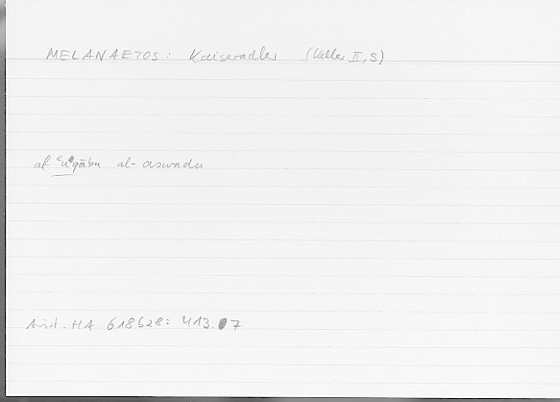 MELANAETOS: Kaiseradler (Keller II, 5)
al ʿuqābu al-aswadu
Arist. HA 618b28: 413.07